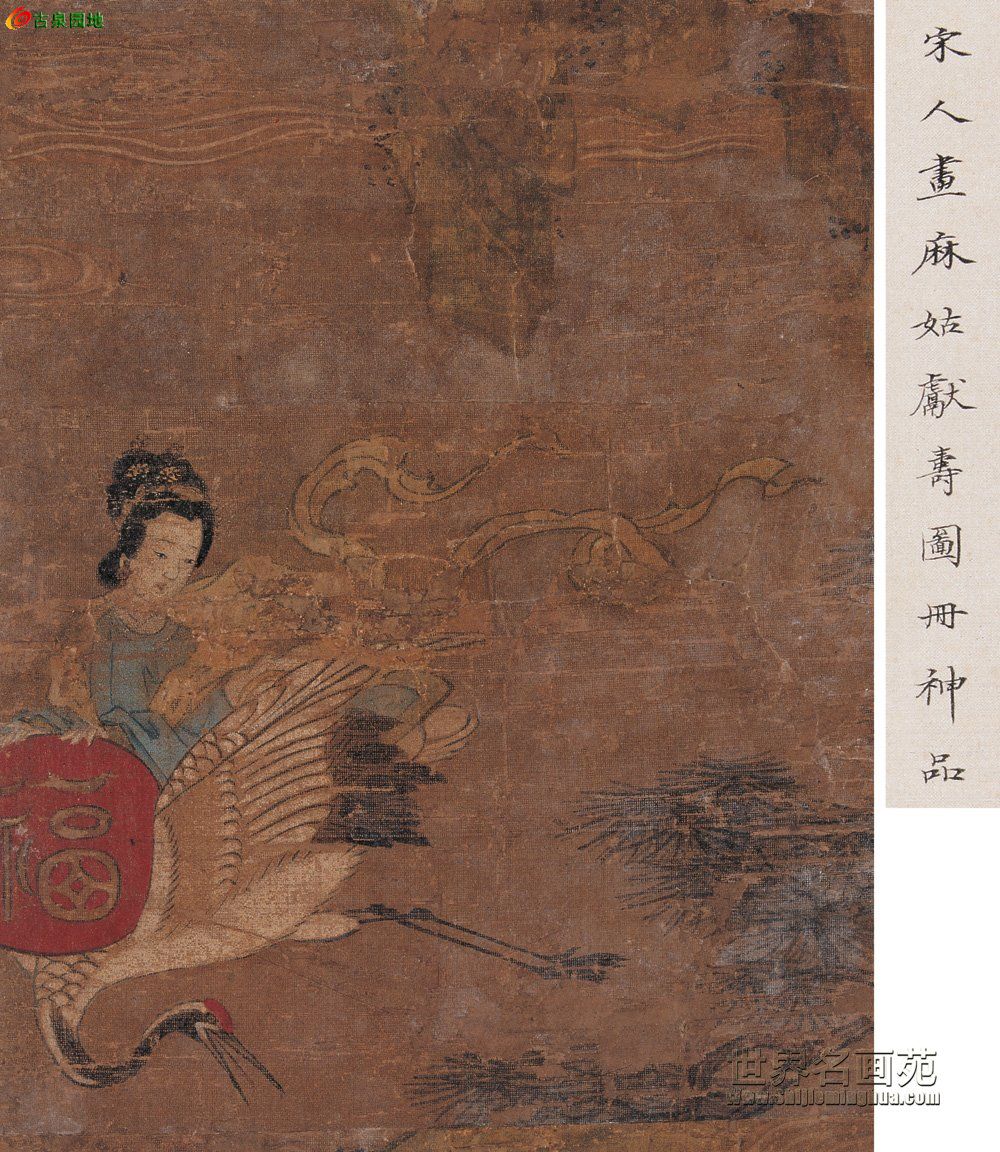 古泉园地
宋人畫麻姑獻壽圖冊神品
福
世界名画苑
www.shijieminghua.com